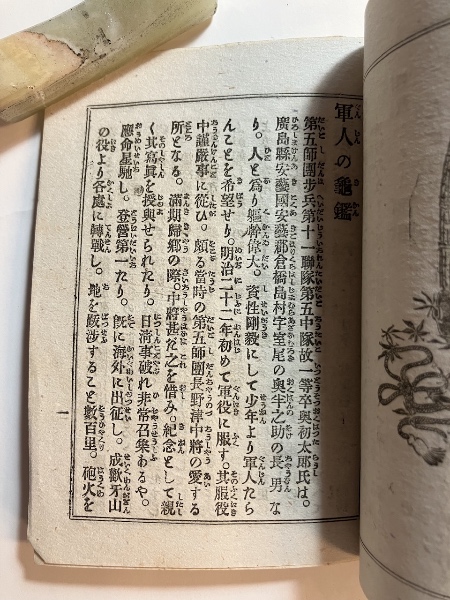 軍人の龜鑑
第五師團步兵第十一聯隊第五中隊故一等卒奥初太郎氏は。
廣島縣安藝國安藝郡倉橋島村字室尾の奥半之助の長男な
り。人と爲り軀幹偉大。資性剛毅にして少年より軍人たら
んことを希望せり。明治二十八年初めて軍役に服す。其服役
中謹嚴事に從ひ。頗る當時の第五師團長野津中將の愛する
所となる。滿期歸鄉の際。中將甚だ之を惜み。紀念として親
く其寫眞を授與せられたり。日淸事破れ非常召集あるや。
應命星馳し。登營第一たり。既に海外に出征し。成歡牙山
の役より各處に轉戰し。地を跋涉すること數百里。砲火を
一